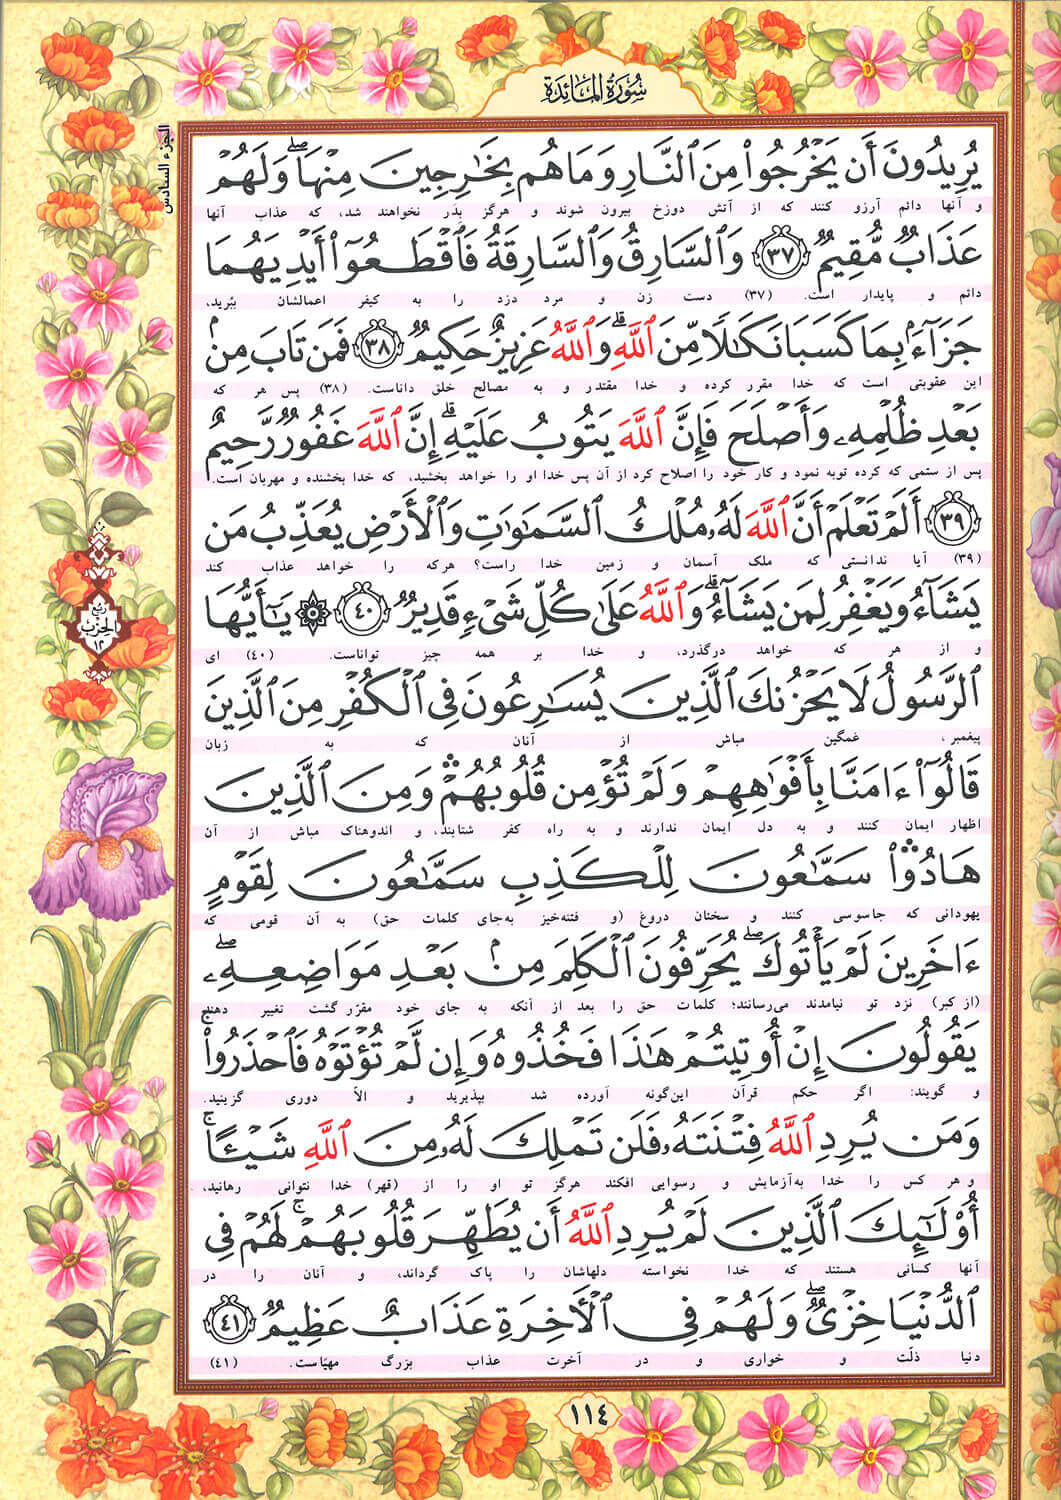 سُورَةُ المَائِدَة
الجزء السادس
يُرِيدُونَ أَن يَخْرُجُوا۟ مِنَ ٱلنَّارِ وَمَا هُم بِخَٰرِجِينَ مِنْهَا ۖ وَلَهُمْ
و آنها دائم آرزو کنند که از آتش دوزخ بیرون شوند و هرگز بِدَر نخواهند شد، که عذاب آنها
عَذَابٌ مُّقِيمٌ ﴿٣٧﴾ وَٱلسَّارِقُ وَٱلسَّارِقَةُ فَٱقْطَعُوٓا۟ أَيْدِيَهُمَا
دائم و پایدار است. (۳۷) دست زن و مرد دزد را به کیفر اعمالشان ببُرید،
جَزَآءًۢ بِمَا كَسَبَا نَكَٰلًا مِّنَ ٱللَّهِ ۗ وَٱللَّهُ عَزِيزٌ حَكِيمٌ ﴿٣٨﴾ فَمَن تَابَ مِنۢ
این عقوبتی است که خدا مقرر کرده و خدا مقتدر و به مصالح خلق داناست. (۳۸) پس هر که
بَعْدِ ظُلْمِهِۦ وَأَصْلَحَ فَإِنَّ ٱللَّهَ يَتُوبُ عَلَيْهِ ۗ إِنَّ ٱللَّهَ غَفُورٌ رَّحِيمٌ
پس از ستمی که کرده توبه نمود و کار خود را اصلاح کرد از آن پس خدا او را خواهد بخشید، که خدا بخشنده و مهربان است.
﴿٣٩﴾ أَلَمْ تَعْلَمْ أَنَّ ٱللَّهَ لَهُۥ مُلْكُ ٱلسَّمَٰوَٰتِ وَٱلْأَرْضِ يُعَذِّبُ مَن
(۳۹) آیا ندانستی که ملک آسمان و زمین خدا راست؟ هرکه را خواهد عذاب کند
يَشَآءُ وَيَغْفِرُ لِمَن يَشَآءُ ۗ وَٱللَّهُ عَلَىٰ كُلِّ شَىْءٍ قَدِيرٌ ﴿٤٠﴾ ۞ يَٰٓأَيُّهَا
و از هر که خواهد درگذرد، و خدا بر همه چیز تواناست. (۴۰) ای
ٱلرَّسُولُ لَا يَحْزُنكَ ٱلَّذِينَ يُسَٰرِعُونَ فِى ٱلْكُفْرِ مِنَ ٱلَّذِينَ
پیغمبر، غمگین مباش از آنان که به زبان
قَالُوٓا۟ ءَامَنَّا بِأَفْوَٰهِهِمْ وَلَمْ تُؤْمِن قُلُوبُهُمْ ۛ وَمِنَ ٱلَّذِينَ
اظهار ایمان کنند و به دل ایمان ندارند و به راه کفر شتابند، و اندوهناک مباش از آن
هَادُوا۟ ۛ سَمَّٰعُونَ لِلْكَذِبِ سَمَّٰعُونَ لِقَوْمٍ
یهودانی که جاسوسی کنند و سخنان دروغ (و فتنه‌خیز به‌جای کلمات حق) به آن قومی که
ءَاخَرِينَ لَمْ يَأْتُوكَ ۖ يُحَرِّفُونَ ٱلْكَلِمَ مِنۢ بَعْدِ مَوَاضِعِهِۦ ۖ
(از کبر) نزد تو نیامدند می‌رسانند؛ کلمات حق را بعد از آنکه به جای خود مقرّر گشت تغییر دهند
يَقُولُونَ إِنْ أُوتِيتُمْ هَٰذَا فَخُذُوهُ وَإِن لَّمْ تُؤْتَوْهُ فَٱحْذَرُوا۟ ۚ
و گویند: اگر حکم قرآن این‌گونه آورده شد بپذیرید و الاّ دوری گزینید.
وَمَن يُرِدِ ٱللَّهُ فِتْنَتَهُۥ فَلَن تَمْلِكَ لَهُۥ مِنَ ٱللَّهِ شَيْـًٔا ۚ
و هر کس را خدا به‌آزمایش و رسوایی افکند هرگز تو او را از (قهر) خدا نتوانی رهانید،
أُو۟لَٰٓئِكَ ٱلَّذِينَ لَمْ يُرِدِ ٱللَّهُ أَن يُطَهِّرَ قُلُوبَهُمْ ۚ لَهُمْ فِى
آنها کسانی هستند که خدا نخواسته دلهاشان را پاک گرداند، و آنان را در
ٱلدُّنْيَا خِزْىٌ ۖ وَلَهُمْ فِى ٱلْءَاخِرَةِ عَذَابٌ عَظِيمٌ ﴿٤١﴾
دنیا ذلّت و خواری و در آخرت عذاب بزرگ مهیّاست. (۴۱)
ربع
الحزب
١٢
١١٤